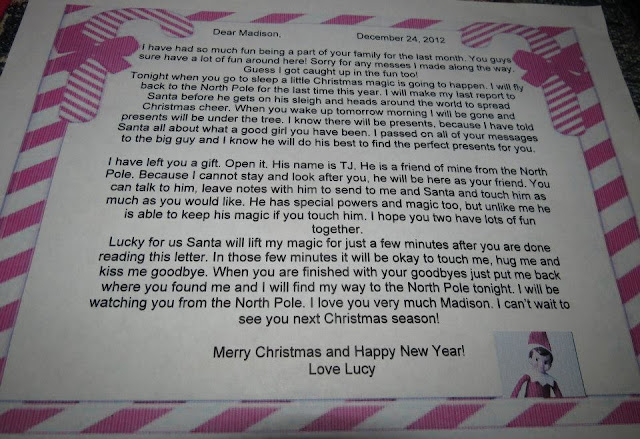 Dear Madison, December 24, 2012
I have had so much fun being a part of your family for the last month. You guys
sure have a lot of fun around here! Sorry for any messes I made along the way.
Guess I got caught up in the fun too!
Tonight when you go to sleep a little Christmas magic is going to happen. I will fly
back to the North Pole for the last time this year. I will make my last report to
Santa before he gets on his sleigh and heads around the world to spread
Christmas cheer. When you wake up tomorrow morning I will be gone and
presents will be under the tree. I know there will be presents, because I have told
Santa all about what a good girl you have been. I passed on all of your messages
to the big guy and I know he will do his best to find the perfect presents for you.
I have left you a gift. Open it. His name is TJ. He is a friend of mine from the North
Pole. Because I cannot stay and look after you, he will be here as your friend. You
can talk to him, leave notes with him to send to me and Santa and touch him as
much as you would like. He has special powers and magic too, but unlike me he
is able to keep his magic if you touch him. I hope you two have lots of fun
together.
Lucky for us Santa will lift my magic for just a few minutes after you are done
reading this letter. In those few minutes it will be okay to touch me, hug me and
kiss me goodbye. When you are finished with your goodbyes just put me back
where you found me and I will find my way to the North Pole tonight. I will be
watching you from the North Pole. I love you very much Madison. I can't wait to
see you next Christmas season!
Merry Christmas and Happy New Year!
Love Lucy